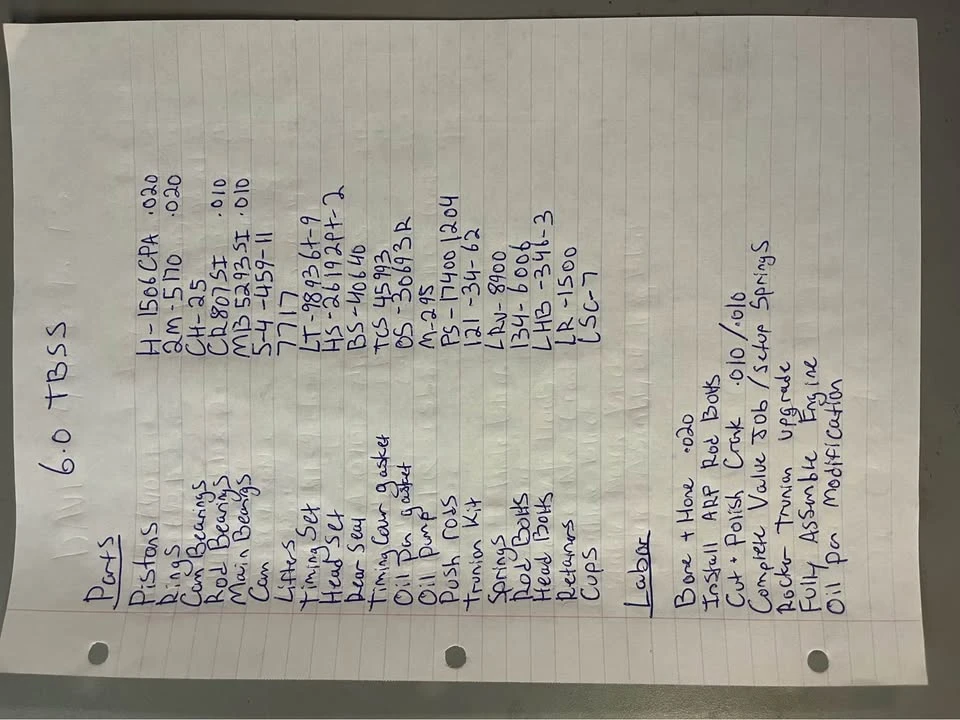 6.0 TBSS
Parts
Pistons H-1506CPA .020
Rings 2M-5170 .020
Cam Bearings CH-25
Rod Bearings CR807SI .010
Main Bearings MB5293SI .010
Cam 54-459-11
Lifters 7717
Timing Set LT-98936t-9
Head Set HS-26192Pt-2
Rear Seal BS-40640
Timing Cover gasket TCS 45993
Oil Pan gasket OS-30693R
Oil Pump M-295
Push rods PS-17400 1204
Trunion Kit 121-34-62
Springs LRV-8900
Rod Bolts 134-6006
Head Bolts LHB-346-3
Retainers LR-1500
Cups LSC-7
Labor
Bore + Hone .020
Install ARP Rod Bolts
Cut + Polish Crank .010/.010
Complete Valve Job / Setup Springs
Rocker Trunion Upgrade
Fully Assemble Engine
Oil pan Modification